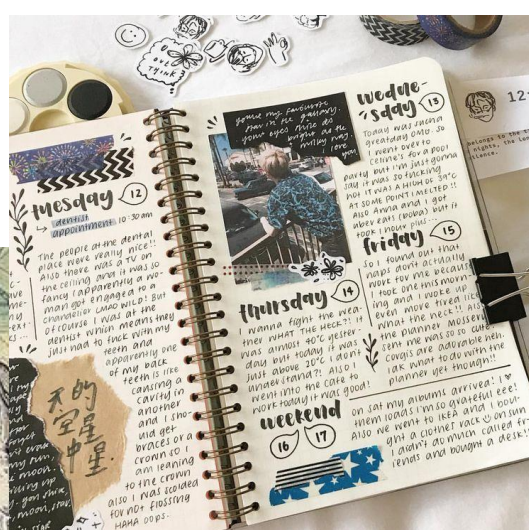 U
over
THINK
tuesday 12
dentist
appointment 10:30 am
The people at the dental
place were really nice!!
Also there was a TV on
the ceiling, and it was so
fancy I apparently a
man got engaged to a
chandelier LMAO WILD! But
of course I was at the
dentist which means they
just had to fuck with my
teeth and
apparently one
of my back
teeth is like
causing a
cavity in
another
and I sho-
uld get
braces or a
crown so I
am leaning
to the crown
also I was scolded
for not flossing
HAHA oops.
天的
空星
中星
moon
moon, star
STAR
you're my favourite
star in the galaxy.
your eyes shine as
bright as the
milky way.
I love
you
wedne-
sday 13
Today was such a
great day omg. so
I went over to
celine's for a pool
party but I'm just gonna
say it was so fucking
hot IT WAS A HIGH OF 39°C
AT SOME POINT I MELTED!!
Also Anna and I got
uber eats (boba) but it
took 1 hour plus...
thursday 14
I wanna fight the wea-
ther WHAT THE HECK?! It
was almost 40°C yester-
day but today it was
just above 20°C I don't
understand?! Also I
went into the café to
work today it was good!
friday 15
So I found out that
naps don't actually
work for me because
I took one this morn-
ing and I woke up
even more tired like
what the heck!! Also
the planner mossery
sent me was so cute
corgis are adorable heh.
idk what to do with the
planner yet though!!
weekend
16 17
on sat my albums arrived! I ♥
them loads I'm so grateful eee!
Also we went to IKEA and I bou-
ght a clother rack on sun
I didn't do much called fr-
iends and bought a desk!!
12:
belongs to the
nights, the
silence.